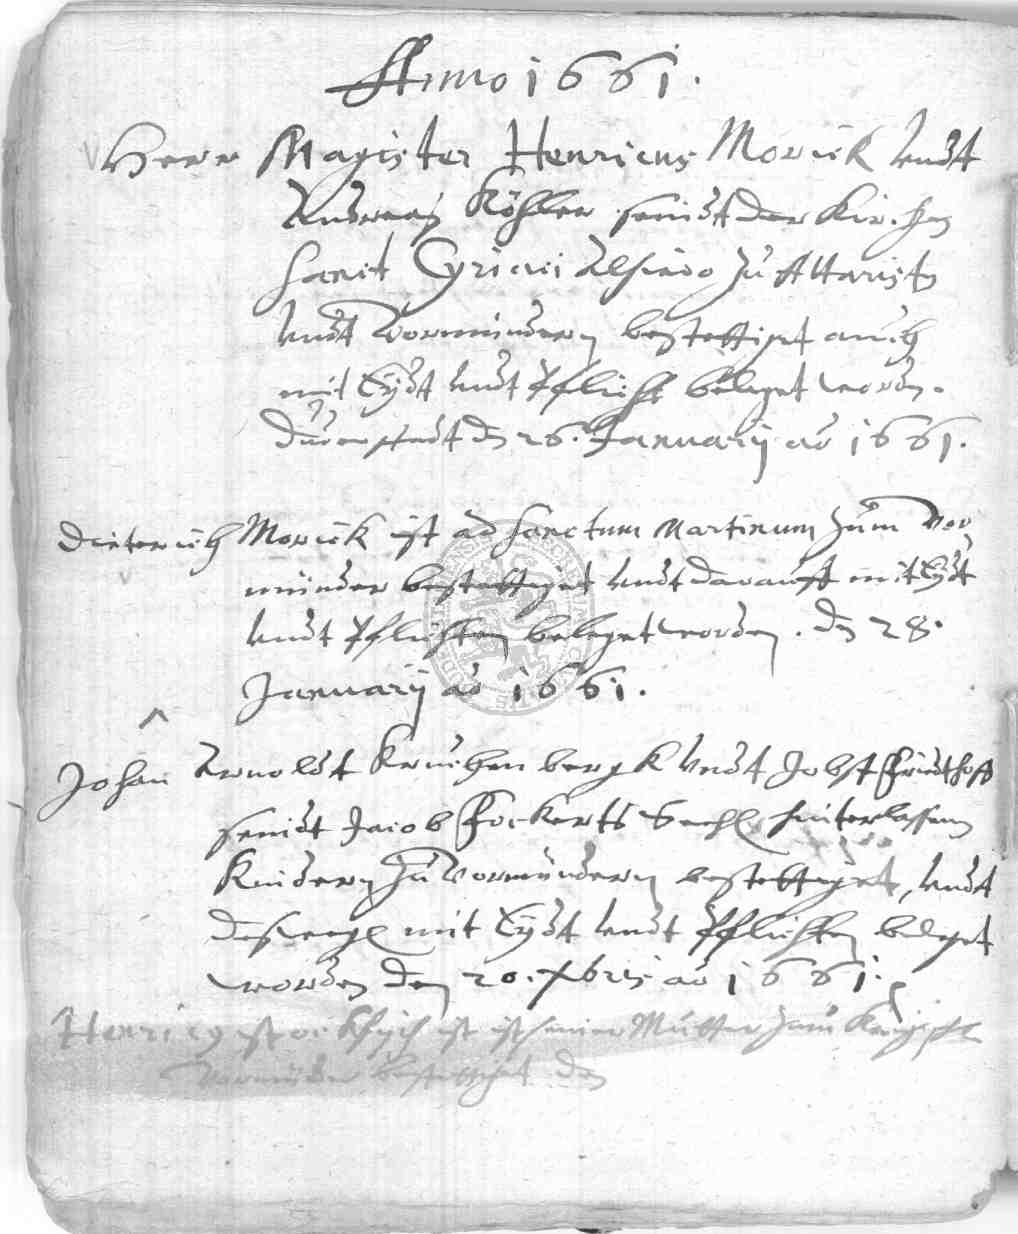 Anno 1661.
Herr Magister Henricus Morick undt
Andreas Köhler seindt der Kirchen
Sanct Cyriaci alhiero zu Altaristen
undt Vormündern bestettiget auch
mit Eydt undt Pflicht beleget worden.
Duderstadt den 26. Januarij ao 1661.
Dieterich Morick ist ad Sanctum Martinum zum Vor
münder bestettiget undt darauff mit Eydt
undt Pflichten beleget worden. den 28.
Januarij ao 1661.
Johan Arnoldt Kruchen bergk undt Jobst
seindt Jacob Fockerts Seehl. hinterlassenen
Kindern zu Vormündern bestettiget, undt
deswegen mit Eydt undt Pflichten beleget
worden den 20. Xbris ao 1661.
Henricy ist seiner Mutter zum
Vormünder bestettiget den